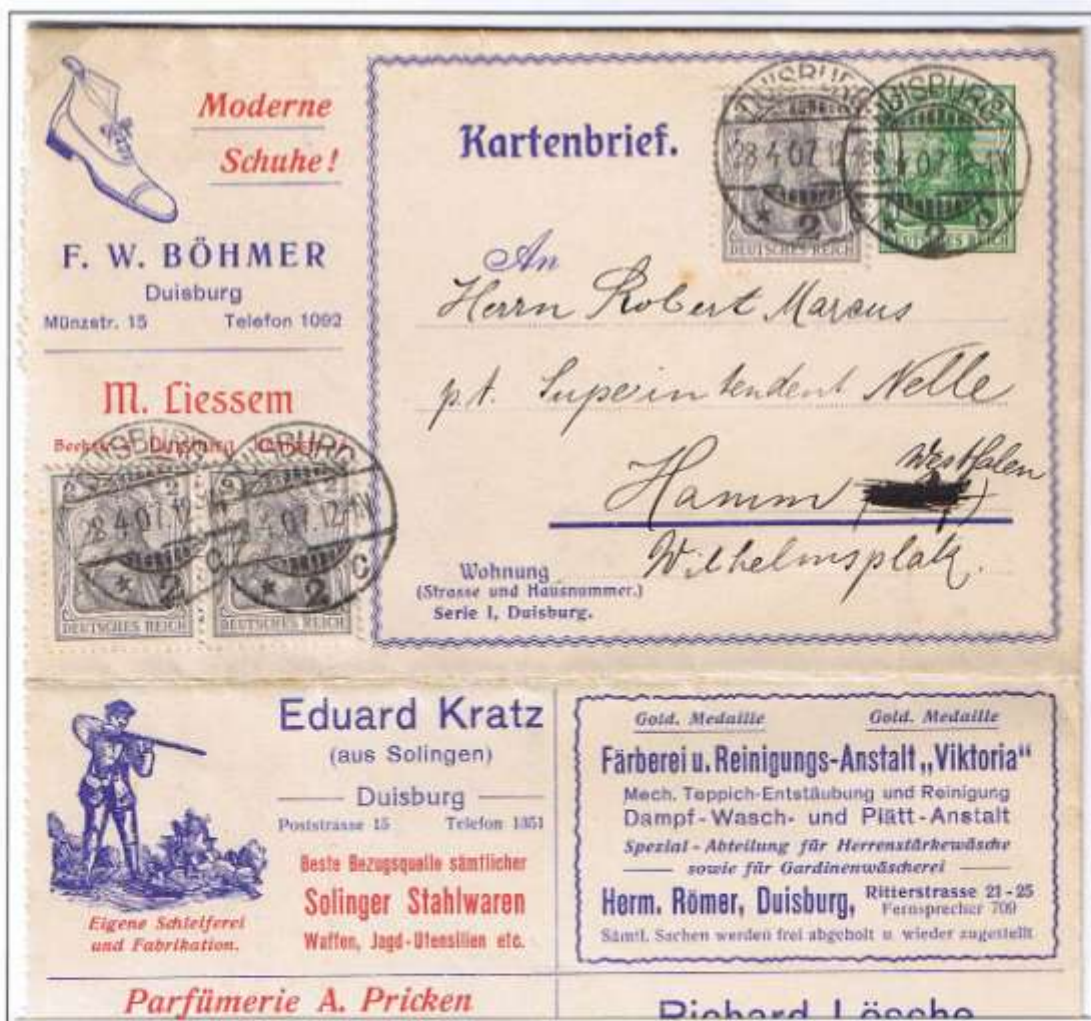 Moderne
Schuhe!
F. W. BÖHMER
Duisburg
Münzstr. 15 Telefon 1092
M. Liessem
Duisburg
DUISBURG DUISBURG
2 2 2
28.4.07.12 4.07.12-1N
* 2 c * 2 c
DEUTSCHES REICH DEUTSCHES REICH
Kartenbrief.
DUISBURG DUISBURG
28.4.07.12 4.07.12-1N
* 2 * 2
DEUTSCHES REICH DEUTSCHES REICH
An
Herrn Robert Marcus
p. A. Superintendent Nelle
Westfalen
Hamm
Wilhelmsplatz.
Wohnung
(Strasse und Hausnummer.)
Serie I, Duisburg.
Eigene Schleiferei
und Fabrikation.
Eduard Kratz
(aus Solingen)
Duisburg
Poststrasse 15 Telefon 1351
Beste Bezugsquelle sämtlicher
Solinger Stahlwaren
Waffen, Jagd-Utensilien etc.
Gold. Medaille Gold. Medaille
Färberei u. Reinigungs-Anstalt „Viktoria“
Mech. Teppich-Entstäubung und Reinigung
Dampf-Wasch- und Plätt-Anstalt
Spezial-Abteilung für Herrenstärkewäsche
sowie für Gardinenwäscherei
Herm. Römer, Duisburg, Ritterstrasse 21-25
Fernsprecher 709
Sämtl. Sachen werden frei abgeholt u. wieder zugestellt
Parfümerie A. Pricken
Richard Lösche